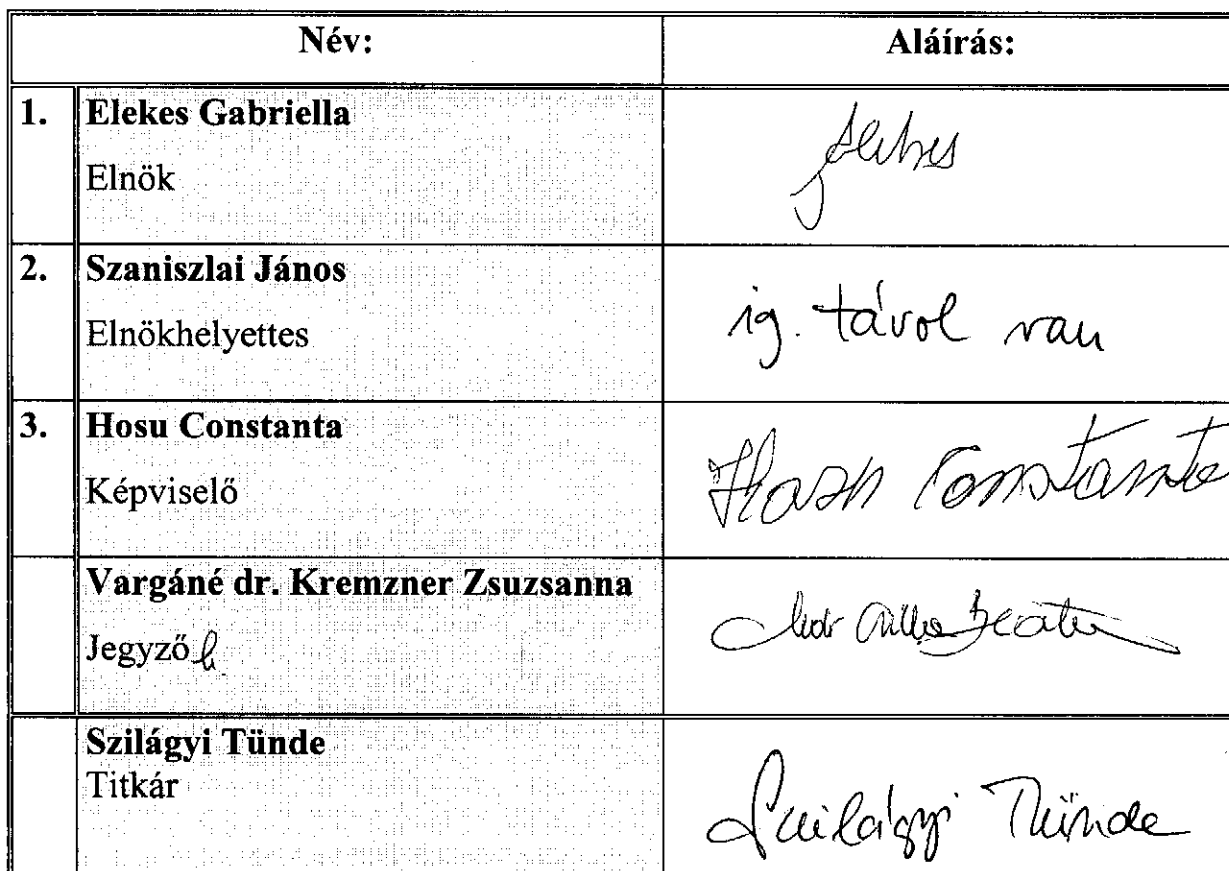 Név: Aláírás:
1. Elekes Gabriella
Elnök
Elekes
2. Szaniszlai János
Elnökhelyettes
ig. távol van
3. Hosu Constanta
Képviselő
Hosu Constanta
Vargáné dr. Kremzner Zsuzsanna
Jegyző h.
Beáta
Szilágyi Tünde
Titkár
Szilágyi Tünde